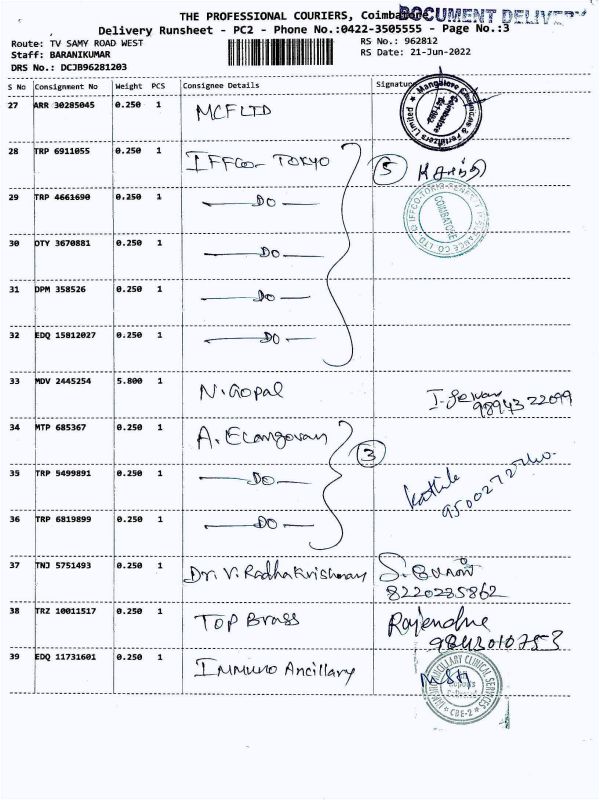 THE PROFESSIONAL COURIERS, Coimbatore
DOCUMENT DELIVERY
Delivery Runsheet - PC2 - Phone No.:0422-3505555 - Page No.:3
Route: TV SAMY ROAD WEST
RS No.: 962812
Staff: BARANIKUMAR
RS Date: 21-Jun-2022
DRS No.: DCJB96281203
S No Consignment No Weight PCS Consignee Details Signature
27 ARR 30285045 0.250 1 MCF LTD
Mangalore Chemicals & Fertilizers Limited
Coimbatore
28 TRP 6911055 0.250 1 IFFCO TOKYO 5
29 TRP 4661690 0.250 1 DO
IFFCO-TOKIO GENERAL INSURANCE CO LTD.
COIMBATORE
30 OTY 3670881 0.250 1 DO
31 DPM 358526 0.250 1 DO
32 EDQ 15812027 0.250 1 DO
33 MDV 2445254 5.800 1 N. Gopal
98943 22099
34 MTP 685367 0.250 1 A. Elangovan 3
35 TRP 5499891 0.250 1 DO
36 TRP 6819899 0.250 1 DO
37 TNJ 5751493 0.250 1 Dr. V. Radhakrishnan
8220285862
38 TRZ 10011517 0.250 1 TOP Brass
9843010753
39 EDQ 11731601 0.250 1 Immuno Ancillary
IMMUNO ANCILLARY CLINICAL SERVICES
CBE-2